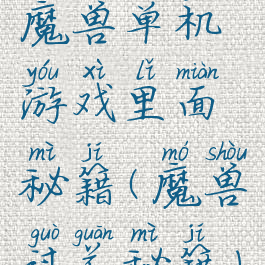 魔兽单机
yóu xì lǐ miàn
游戏里面
mì jí mó shòu
秘籍(魔兽
guò guān mì jí
过关秘籍)